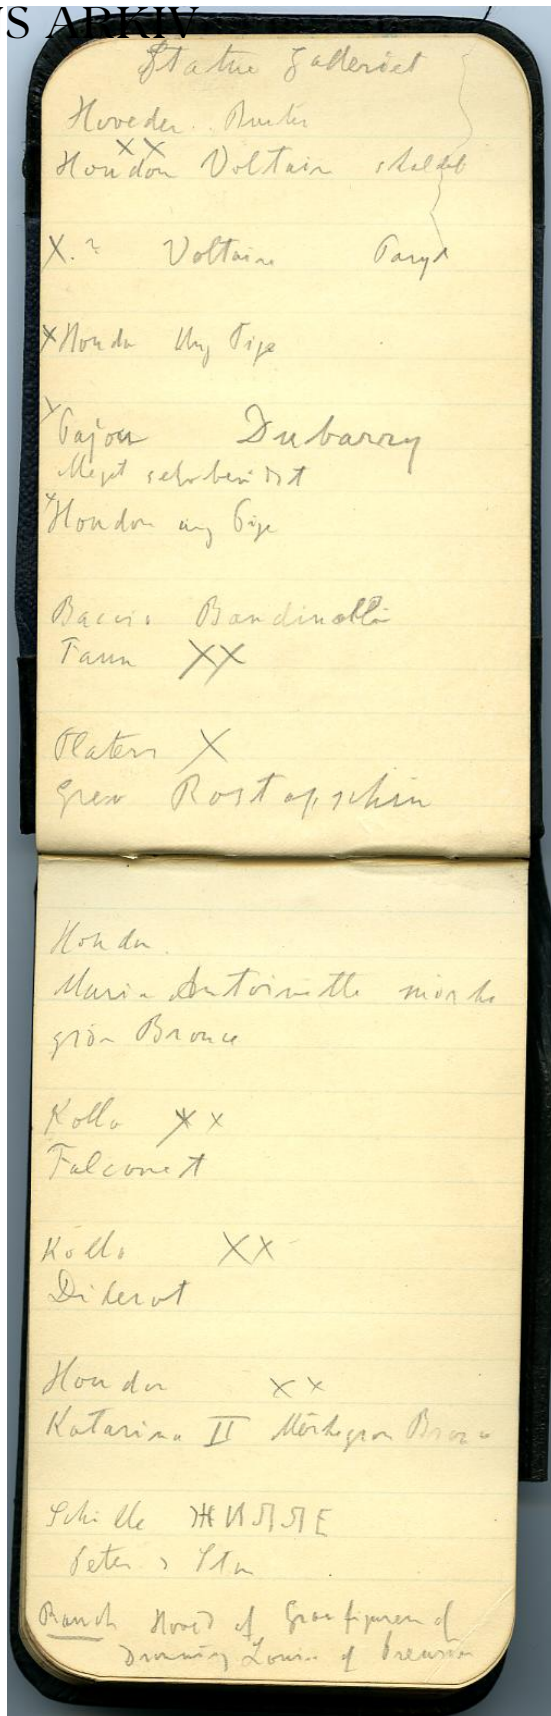 S ARKIV
Statue Galleriet
Hoveder. Buster
XX
Houdon Voltair skaldet
X.? Voltaire Paryk
X Houdon Ung Pige
X Pajou Dubarry
Meget
X Houdon ung Pige
Baccio Bandinelli
Faun XX
X
Grev Rostopschin
Houdon
Maria Antoinette mörke
grön Bronce
Kollo XX
Falconet
Kollo XX
Diderot
Houdon XX
Katarina II Mörkegrön Bronce
Peter
Rauch Hoved af Gravfiguren af
Dronning Louise af Preussen